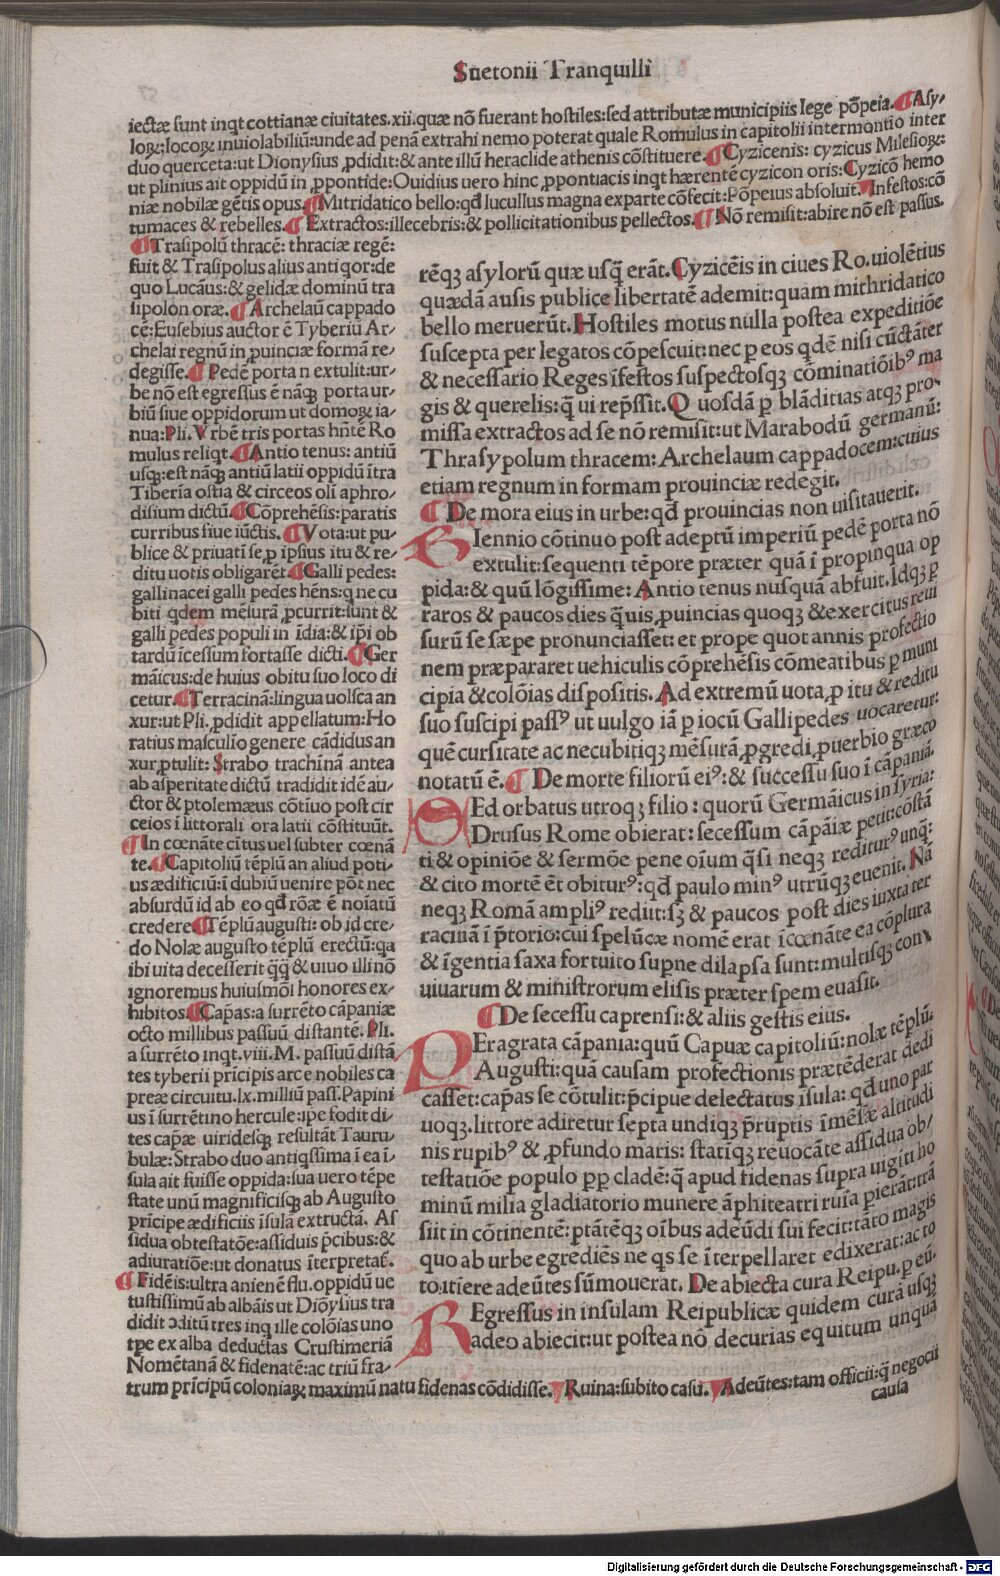 Suetonii Tranquilli
iectæ sunt inqt cottianæ ciuitates.xii.quæ nõ fuerant hostiles:sed attributæ municipiis lege põpeia. ¶ Asy-
loꝝ:locoꝝ inuiolabiliũ:unde ad penã extrahi nemo poterat quale Romulus in capitolii intermontio inter
duo querceta:ut Dionysius ꝓdidit:& ante illũ heraclide athenis cõstituere. ¶ Cyzicenis: cyzicus Milesioꝝ:
ut plinius ait oppidũ in ꝓpontide:Ouidius uero hinc ꝓpontiacis inqt hærentẽ cyzicon oris:Cyzicõ hemo
niæ nobilæ gẽtis opus. ¶ Mitridatico bello:qđ lucullus magna exparte cõfecit:Põpeius absoluit. ¶ Infestos:cõ
tumaces & rebelles. ¶ Extractos:illecebris:& pollicitationibus pellectos. ¶ Nõ remisit:abire nõ est passus.
¶ Trasipolũ thracẽ: thraciæ regẽ:
fuit & Trasipolus alius antiqor:de
quo Lucãus:& gelidæ dominũ tra
sipolon oræ. ¶ Archelaũ cappado
cẽ:Eusebius auctor ẽ Tyberiũ Ar-
chelai regnũ in ꝓuinciæ formã re-
degisse. ¶ Pedẽ porta n extulit:ur-
be nõ est egressus ẽ nãqꝫ porta ur-
biũ siue oppidorum ut domoꝝ ia-
nua:Pli. Vrbẽ tris portas hñtẽ Ro
mulus reliqt. ¶ Antio tenus: antiũ
usqꝫ:est nãqꝫ antiũ latii oppidũ ĩtra
Tiberĩa ostia & circeos oli aphro-
disium dictũ. ¶ Cõprehẽsis:paratis
curribus siue iũctis. ¶ Vota:ut pu-
blice & priuati se ꝓ ipsius itu & re-
ditu uotis obligarẽt. ¶ Galli pedes:
gallinacei galli pedes hẽns:q ne cu
biti qdem mẽsurã ꝑcurrit:sunt &
galli pedes populi in ĩdia:& ip̃i ob
tardũ ĩcessum fortasse dicti. ¶ Ger
mãicus:de huius obitu suo loco di
cetur. ¶ Terracinã:lingua uolsca an
xur:ut Pli. ꝓdidit appellatum:Ho
ratius masculĩo genere cãdidus an
xur ꝓtulit: Strabo trachinã antea
ab asperitate dictũ tradidit idẽ au-
ctor & ptolemæus cõtiuo post cir
ceios ĩ littorali ora latii cõstituũt.
¶ In cœnãte cĩtus uel subter cœnã
te. ¶ Capitoliũ tẽplũ an aliud poti-
us ædificiũ:ĩ dubiũ uenire põt nec
absurdũ id ab eo qđ rõæ ẽ noĩatũ
credere ¶ Tẽplũ augusti: ob id cre-
do Nolæ augusto tẽplũ erectũ:qa
ibi uita decesserit q̃q̃ & uiuo illi nõ
ignoremus huiusmõi honores ex-
hibitos. ¶ Cap̃as:a surrẽto cãpaniæ
octo millibus passuũ distantẽ. Pli.
a surrẽto inqt.viii.M. passuũ distã
tes tyberii prĩcipis arce nobiles ca
preæ circuitu.lx.milliũ pass.Papini
us ĩ surrẽtino hercule:ip̃e fodit di-
tes cap̃æ uiridesqꝫ resultãt Tauru-
bulæ:Strabo duo antiqssima ĩ ea ĩ-
sula ait fuisse oppida:sua uero tẽpe
state unũ magnificisqꝫ ab Augusto
prĩcipe ædificiis ĩsula extructã. As
sidua obtestatõe:assiduis p̃cibus:&
adiuratiõe:ut donatus ĩterpretat̃.
¶ Fidẽis:ultra anienẽ flu.oppidũ ue
tustissimũ ab albãis ut Diõysius tra
didit ↄditũ tres inq ille colõias uno
tp̃e ex alba deductas Crustimeriã
Nomẽtanã & fidenatẽ:ac triũ fra-
trum prĩcipũ coloniaꝝ maximũ natu fidenas cõdidisse. ¶ Ruina:subito casu. ¶ Adeũtes:tam officii:q̃ negocii
causa
rẽqꝫ asylorũ quæ usq̃ erãt. Cyzicẽis in ciues Ro.uiolẽtius
quædã ausis publice libertatẽ ademit:quam mithridatico
bello meruerũt. Hostiles motus nulla postea expeditiõe
suscepta per legatos cõpescuit:nec ꝑ eos qdẽ nisi cũctãter
& necessario Reges ĩfestos suspectosqꝫ cõminatiõibꝰ ma
gis & querelis:q̃ ui rep̃ssit. Quosdã ꝑ blãditias atqꝫ pro-
missa extractos ad se nõ remisit:ut Marabodũ germanũ:
Thrasypolum thracem: Archelaum cappadocem:cuius
etiam regnum in formam prouinciæ redegit.
¶ De mora eius in urbe:qđ prouincias non uisitauerit.
BIennio cõtinuo post adeptũ imperiũ pedẽ porta nõ
extulit:sequenti tẽpore præter quã ĩ propinqua op
pida:& quũ lõgissime: Antio tenus nusquã abfuit. Idqꝫ ꝑ
raros & paucos dies q̃uis ꝓuincias quoqꝫ & exercitus reui
surũ se sæpe pronunciasset: et prope quot annis profectio
nem præpararet uehiculis cõprehẽsis cõmeatibus ꝑ muni
cipia & colõias dispositis. Ad extremũ uota ꝓ itu & reditu
suo suscipi passꝰ ut uulgo iã ꝑ iocũ Gallipedes uocaretur:
quẽ cursitare ac necubitiqꝫ mẽsurã ꝓgredi ꝓuerbio græco
notatũ ẽ. ¶ De morte filiorũ eiꝰ:& successu suo ĩ cãpaniã.
SEd orbatus utroqꝫ filio: quorũ Germãicus in syria:
Drusus Rome obierat: secessum cãpãiæ petit:cõstã
ti & opiniõe & sermõe pene oĩum q̃si neqꝫ rediturꝰ unq̃:
& cito mortẽ ẽt obiturꝰ:qđ paulo minꝰ utrũqꝫ euenit. Nã
neqꝫ Romã ampliꝰ rediit:sꝫ & paucos post dies iuxta ter
racinã ĩ p̃torio:cui spelũcæ nomẽ erat ĩcœnãte ea cõplura
& ĩgentia saxa fortuito sup̃ne dilapsa sunt:multisqꝫ con-
uiuarum & ministrorum elisis præter spem euasit.
¶ De secessu caprensi:& aliis gestis eius.
PEragrata cãpania:quũ Capuæ capitoliũ:nolæ tẽplũ
Augusti:quã causam profectionis prætẽderat dedi
casset:cap̃as se cõtulit:p̃cipue delectatus ĩsula: qđ uno par
uoqꝫ.littore adiretur septa undiqꝫ p̃ruptis ĩmẽsæ altitudi
nis rupibꝰ & ꝓfundo maris: statĩqꝫ reuocãte assidua ob-
testatiõe populo ꝓp cladẽ:q̃ apud fidenas supra uigĩti ho
minũ milia gladiatorio munere ãphiteatri ruĩa pierãt:trã
siit in cõtinentẽ:ptãtẽqꝫ oĩbus adeũdi sui fecit:tãto magis
quo ab urbe egrediẽs ne qs se ĩterpellaret edixerat:ac to
to.itiere adeũtes sũmouerat. De abiecta cura Reipu.ꝑ eũ.
REgressus in insulam Reipublicæ quidem curã usqꝫ
adeo abiecit:ut postea nõ decurias equitum unquã
Digitalisierung gefördert durch die Deutsche Forschungsgemeinschaft - DFG